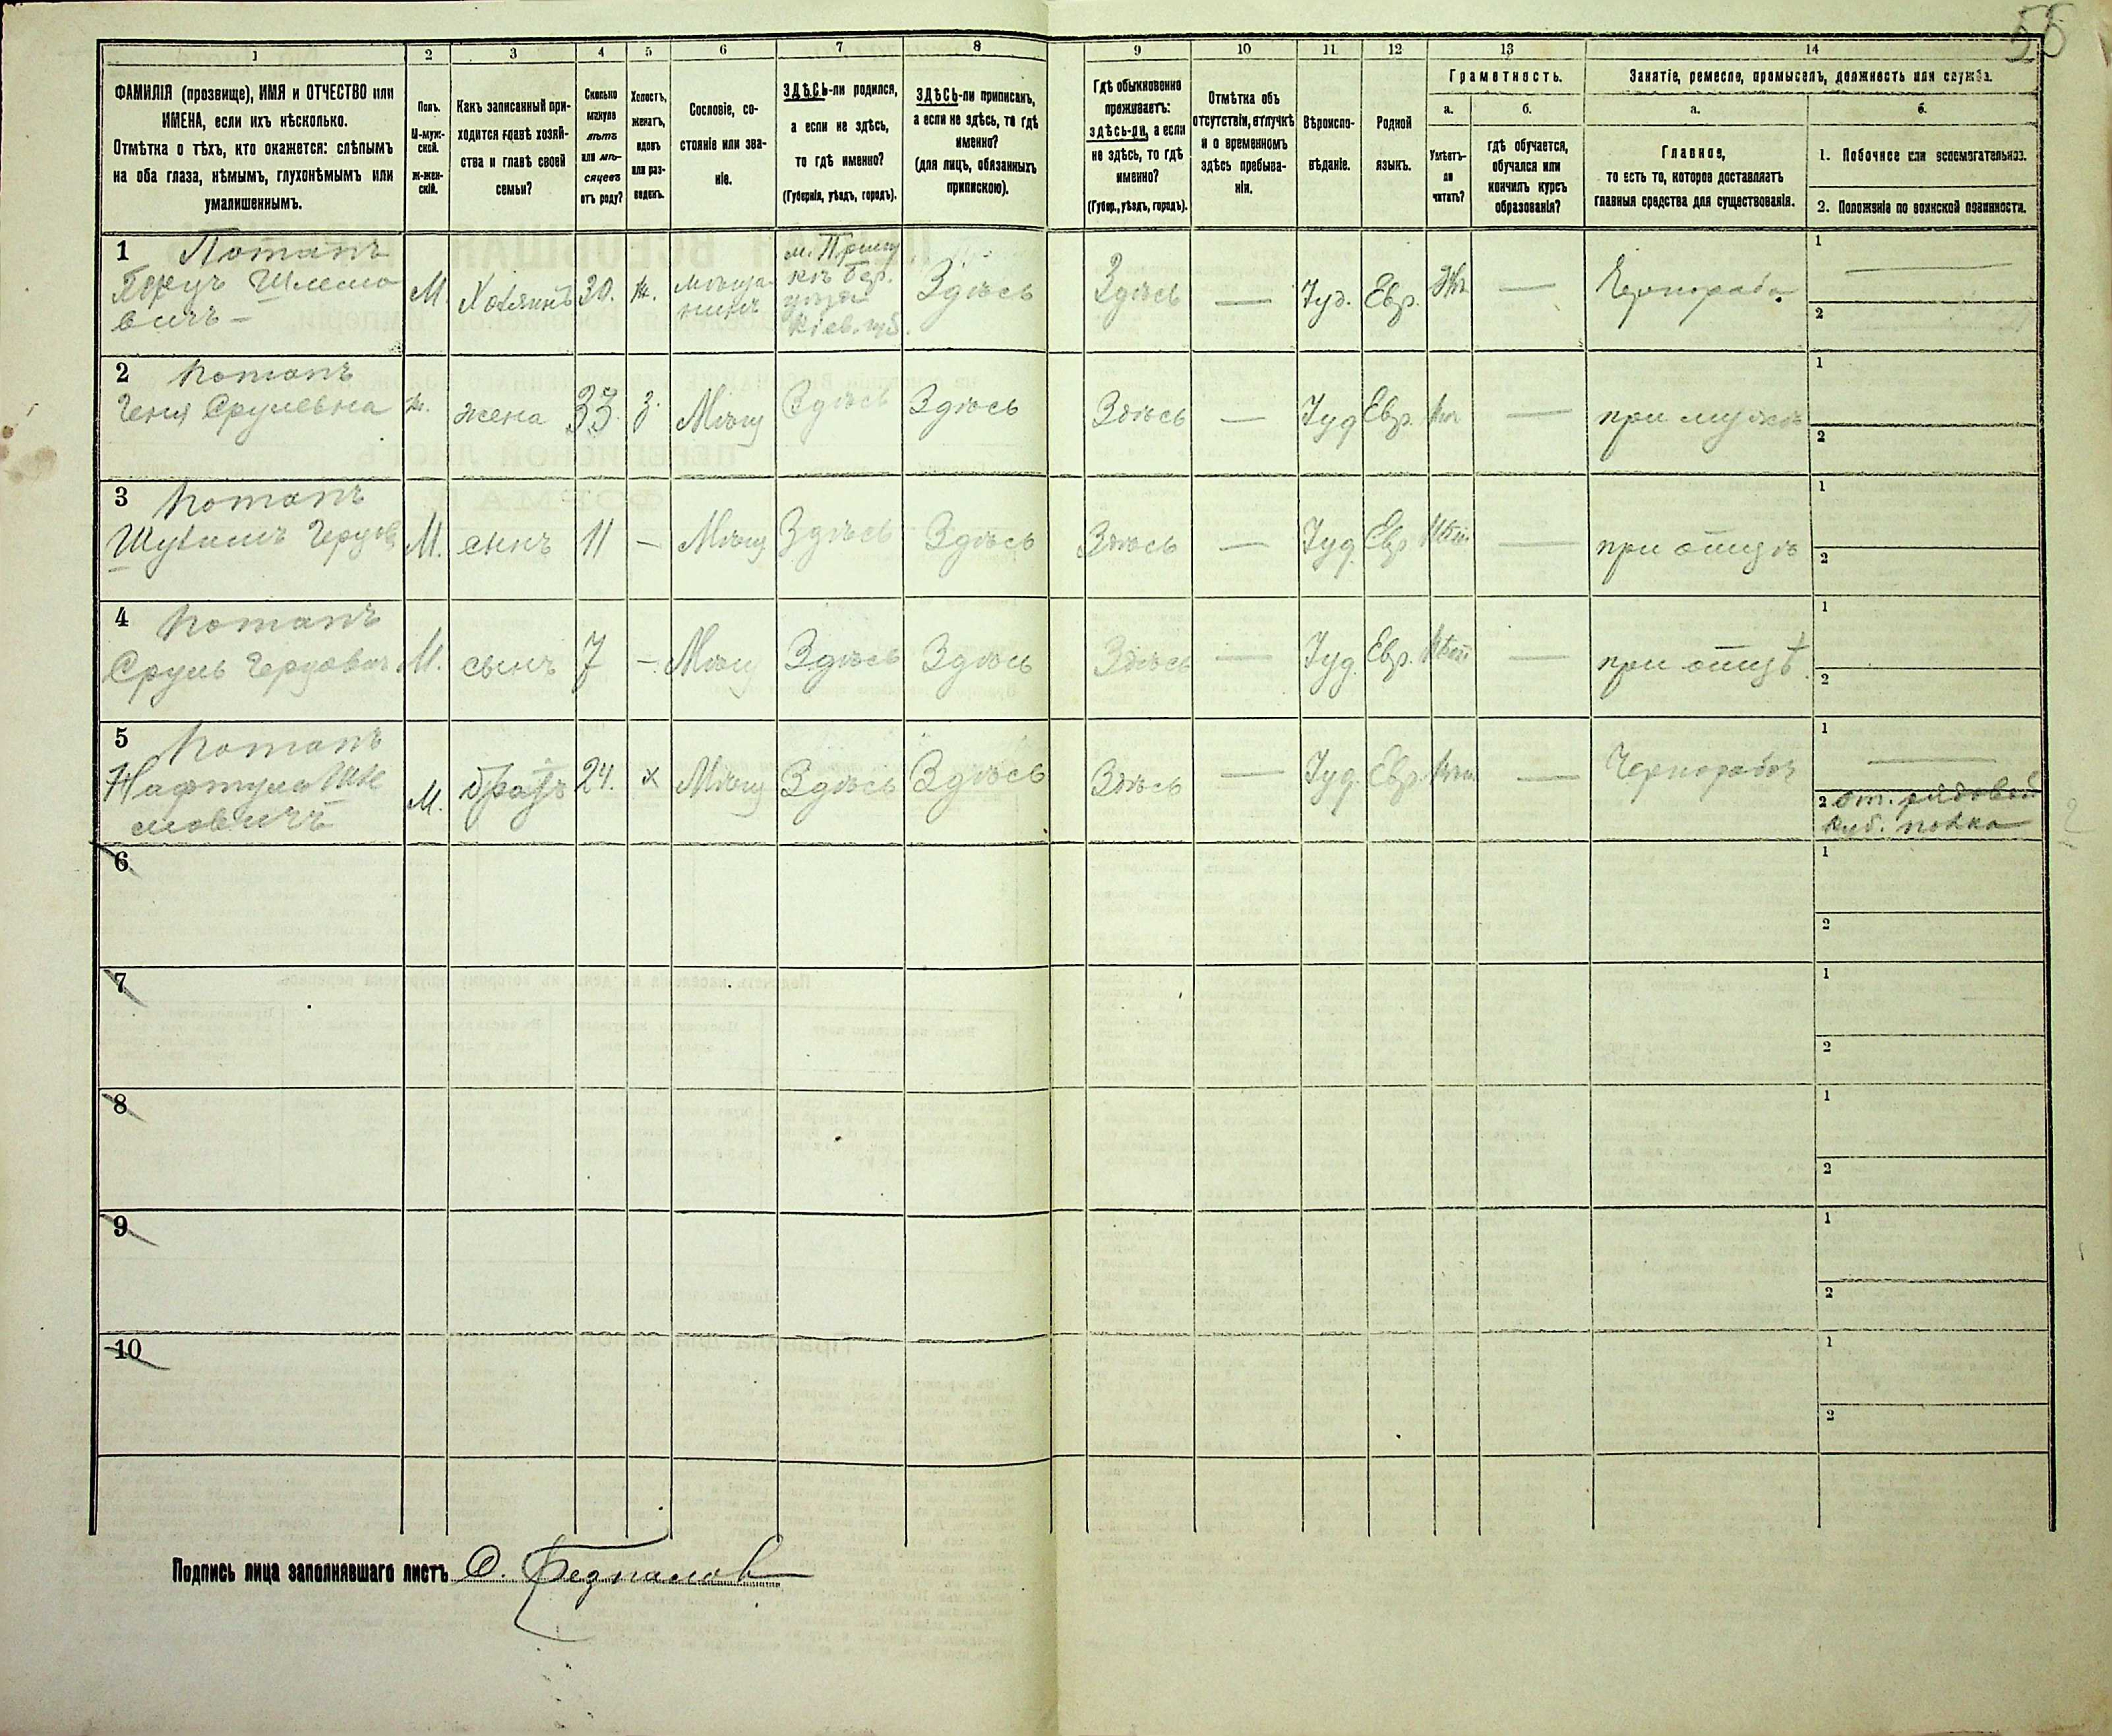 58
1 2 3 4 5 6 7 8 9 10 11 12 13 14
ФАМИЛІЯ (прозвище), ИМЯ и ОТЧЕСТВО или
ИМЕНА, если ихъ нѣсколько.
Отмѣтка о тѣхъ, кто окажется: слѣпымъ
на оба глаза, нѣмымъ, глухонѣмымъ или
умалишеннымъ.
Полъ.
М-муж-
ской.
ж-жен-
скій.
Какъ записанный при-
ходится главѣ хозяй-
ства и главѣ своей
семьи?
Сколько
минуло
лѣтъ
или мѣ-
сяцевъ
отъ роду?
Холостъ,
женатъ,
вдовъ
или раз-
веденъ.
Сословіе, со-
стояніе или зва-
ніе.
ЗДѢСЬ-ли родился,
а если не здѣсь,
то гдѣ именно?
(Губернія, уѣздъ, городъ).
ЗДѢСЬ-ли приписанъ,
а если не здѣсь, то гдѣ
именно?
(для лицъ, обязанныхъ
припискою).
Гдѣ обыкновенно
проживаетъ:
здѣсь-ли, а если
не здѣсь, то гдѣ
именно?
(Губер., уѣздъ, городъ).
Отмѣтка объ
отсутствіи, отлучкѣ
и о временномъ
здѣсь пребыва-
ніи.
Вѣроиспо-
вѣданіе.
Родной
языкъ.
Грамотность.
а.
Умѣетъ-
ли
читать?
б.
гдѣ обучается,
обучался или
кончилъ курсъ
образованія?
Занятіе, ремесло, промыселъ, должность или служба.
а.
Главное,
то есть то, которое доставляетъ
главныя средства для существованія.
б.
1. Побочное или вспомогательное.
2. Положеніе по воинской повинности.
1 Потапъ
Шлемо
вичъ —
М. Хозяинъ 30. ж. мѣща-
нинъ
кіев. губ.
Здѣсь Здѣсь — Іуд. Евр. — 1 — 2
2 Потапъ
Геня Срулевна ж. жена 33 з. Мѣщ Здѣсь Здѣсь Здѣсь — Іуд Евр. — при мужѣ 1 2
3 Потапъ
М. сынъ 11 — Мѣщ Здѣсь Здѣсь Здѣсь — Іуд. Евр — при отцѣ 1 2
4 Потапъ
Сруль М. сынъ 7 — Мѣщ Здѣсь Здѣсь Здѣсь — Іуд. Евр. — при отцѣ. 1 2
5 Потапъ
Нафтула Шле
мовичъ
М. братъ 24. х Мѣщ Здѣсь Здѣсь Здѣсь — Іуд. Евр. — Чернорабоч 1 —
2 рядовой
полка
6 1 2
7 1 2
8 1 2
9 1 2
10 1 2
Подпись лица заполнявшаго листъ